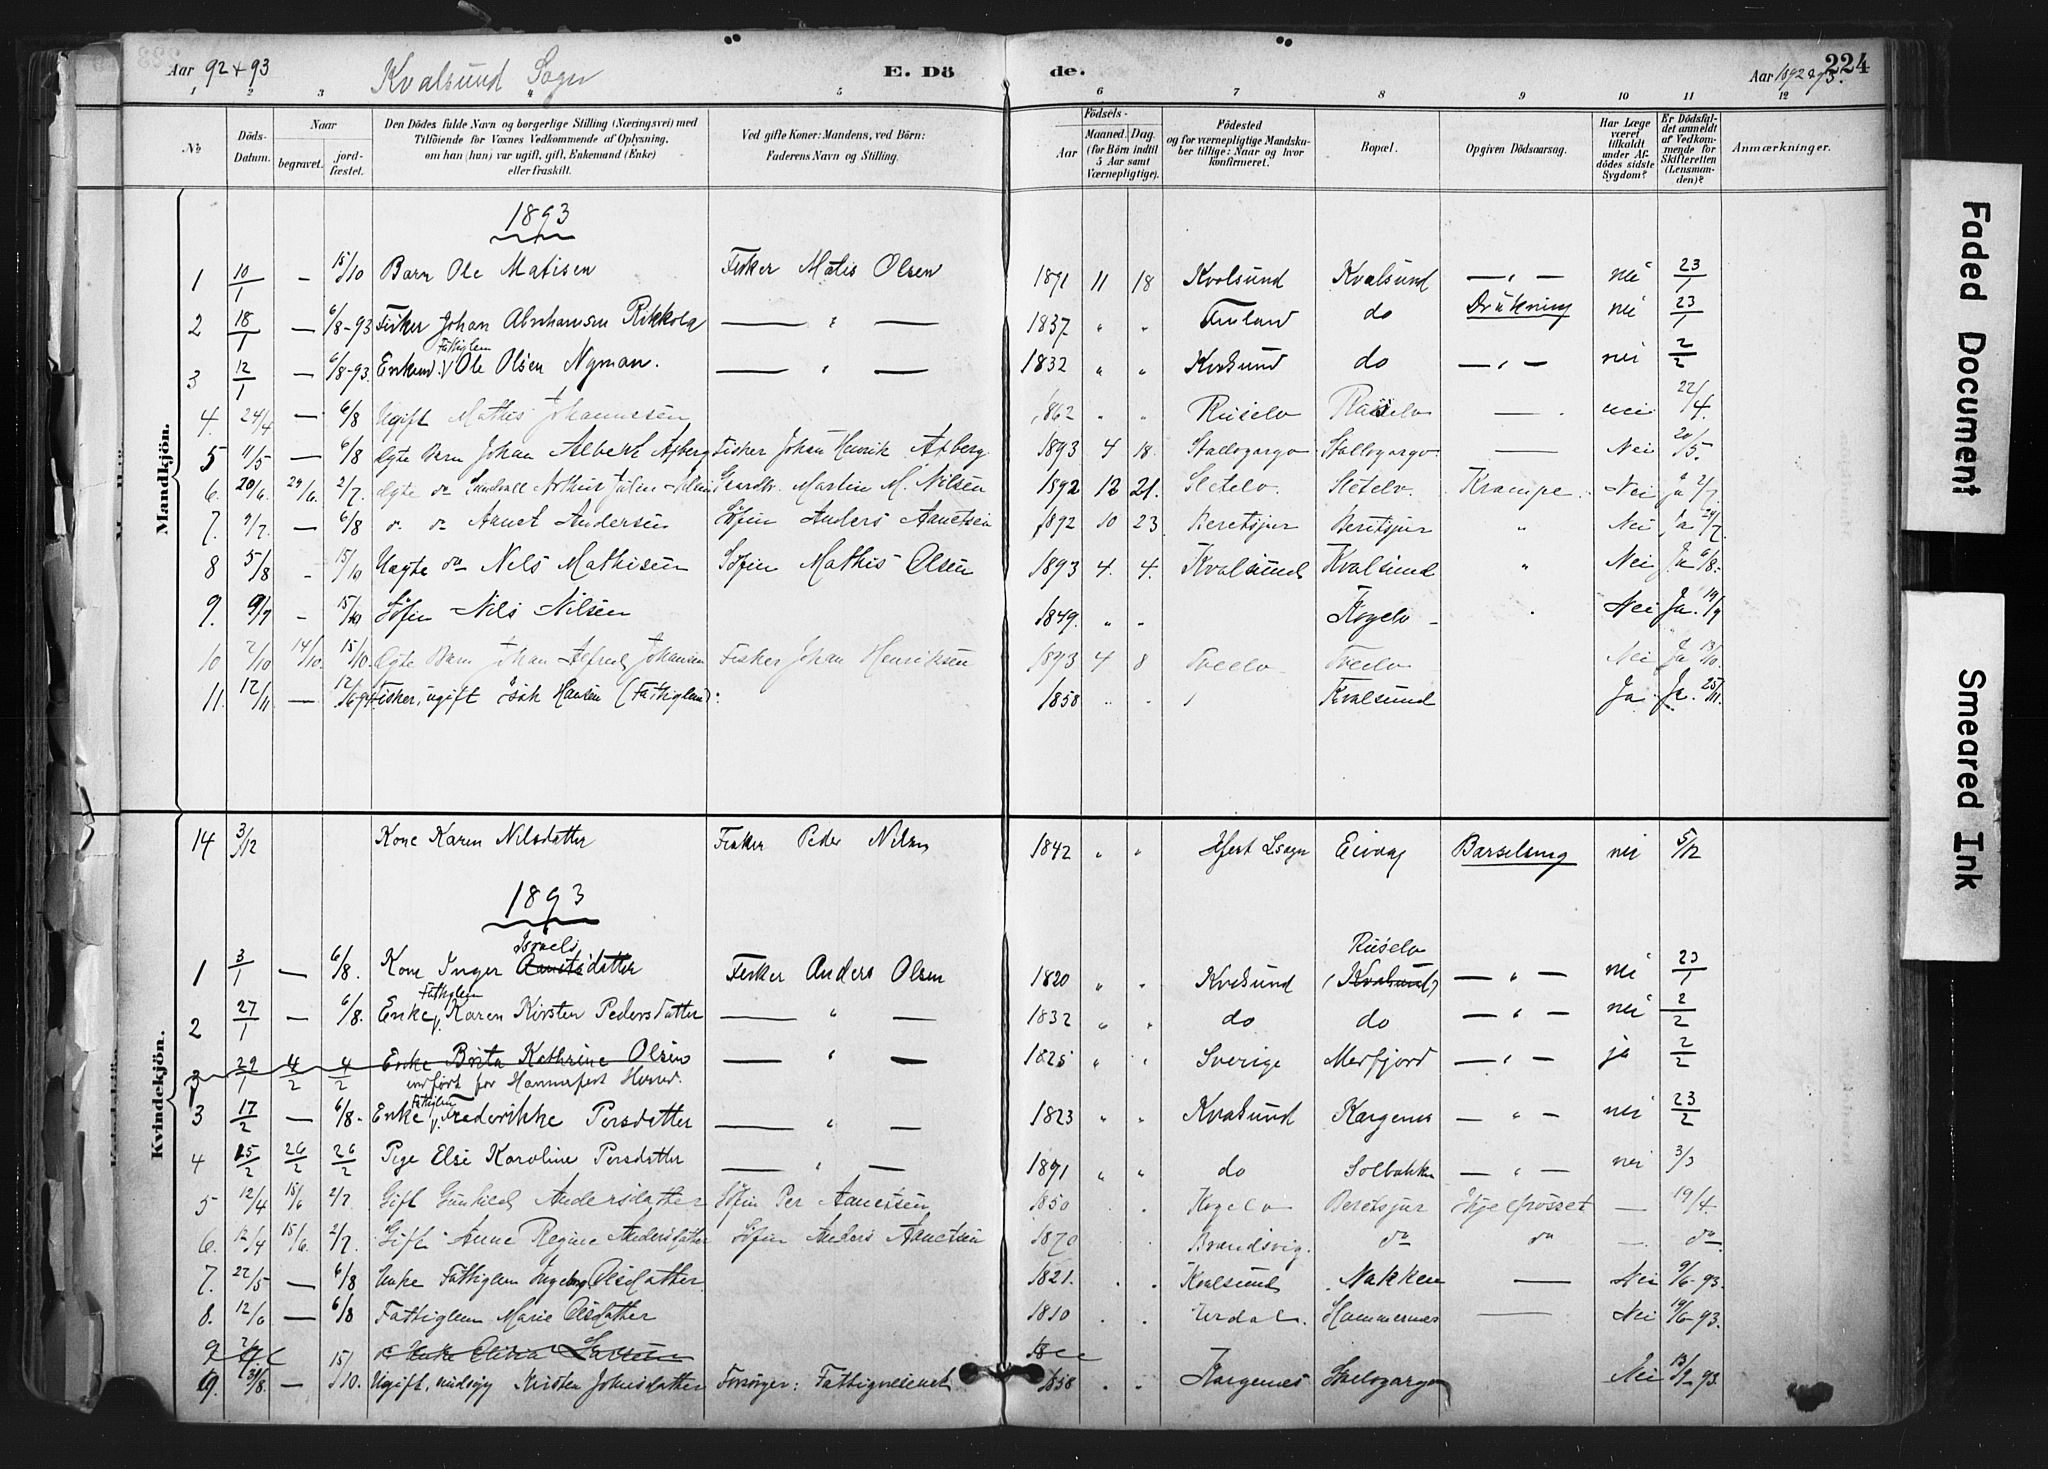 Aar 92 + 93 Kvalsund Sogn E. Dö de. Aar 1892 & 93. 224
1 2 3 4 5 6 7 8 9 10 11 12
No. Döds-Datum. Naar begravet. jordfæstet. Den Dödes fulde Navn og borgerlige Stilling (Næringsvei) med Tilföiende for Voxnes Vedkommende af Oplysning, om han (hun) var ugift, gift, Enkemand (Enke) eller fraskilt. Ved gifte Koner: Mandens, ved Börn: Faderens Navn og Stilling. Födsels- Aar Maaned. Dag. (for Börn indtil 5 Aar samt Værnepligtige). Födested og for værnepligtige Mandskaber tillige: Naar og hvor konfirmeret. Bopæl. Opgiven Dödsaarsag. Har Læge været tilkaldt under Afdödes sidste Sygdom? Er Dödsfaldet anmeldt af Vedkommende for Skifteretten (Lensmanden)? Anmærkninger.
Mandkjön.
1893
1 10/1 — 15/10 Barn Ole Matisen Fisker Matis Olsen 1891 11 18 Kvalsund Kvalsund — " — nei 23/1
2 18/1 — 6/8-93 Fisker Johan Abrahamsen Rikkola — " — 1837 " " Finland do Drukning nei 23/1
Fattiglem
3 12/1 — 6/8-93. Enkem. Ole Olsen Nyman. — " — 1832 " " Kvalsund do — " — nei 2/2
4. 24/4 — 6/8 Ugift Mathis Johannesen 1862 " " Ruselv Ruselv — nei 22/4.
5 11/5 — 6/8 Ægte Barn Johan Albert Axberg Fisker Johan Henrik Axberg 1893 4 18. Stallogargo Stallogargo — Nei 20/5.
6. 20/6. 29/6. 2/7. Ægte do Arthur Martin M. Nilsen 1892 12 21. Sletelv. Sletelv. Krampe. Nei Ja 2/7
7. 9/7. — 6/8 do do Aanet Andersen Söfin Anders Aanetsen 1892 10 23 Beretsjur Beretsjur " Nei Ja 24/7
8 5/8 - 15/10 Uægte do Nils Mathisen Söfin Mathis Olsen 1893 4. 4. Kvalsund Kvalsund " Nei Ja 6/8.
9. 9/9 - 15/10 Söfin Nils Nilsen 1849. " " Kogelv Nei Ja. 19/9
10 7/10 14/10 15/10 Ægte Barn Johan Alfred Johansen Fisker Johan Henriksen 1893 4 8 Tveelv Tveelv Nei Ja 13/10.
11. 12/11 — 12/6 94 Fisker, ugift Isak Hansen (Fattiglem): 1858 " " Kvalsund Ja Ja. 25/11.
Kvindekjön.
14 3/12 Kone Karen Nilsdatter Fisker Peder Nilsen 1842 " " Hfest Lsogn Eivaag Barselseng nei 5/12
1893
Israels Ruselv
1 3/1 — 6/8. Kone Inger Aanetsdatter Fisker Anders Olsen 1820 " " Kvalsund (Kvalsund) — " — nei 23/1
Fattiglem
2 27/1 — 6/8. Enke Karen Kirsten Pedersdatter — " — 1832 " " do do — " — nei 2/2
3 29/1 4/2 4/2 Enke Brita Kathrine Olsen — " — 1825 " " Sverige Mefjord — " — ja 2/2
indført for Hammerfest Herred.
Fattiglem
3 17/2 — 6/8- Enke Frederikke Persdatter — " — 1823 " " Kvalsund Kargenes — " — nei 23/2
4 25/2 26/2 26/2 Pige Else Karoline Persdatter — " — 1891 " " do Solbakken — " — nei 3/3
5 12/4 15/6 2/7. Gift Gunhild Andersdatter Söfin Per Aanetsen 1850 Kogelv Beretsjur Ihjelfrosset — 19/4.
6. 12/4 15/6. 2/7 Gift Anne Regine Andersdatter Söfin Anders Aanetsen 1870 Brændsvig. do do — do
7. 22/5 — 6/8 Enke Fattiglem Ingeborg Olsdatter. 1821. Kvalsund Nakken — Nei 9/6-93.
8. 12/6 — 6/8 Fattiglem Marie Olsdatter 1810 Hammernes — Nei 19/6-93.
9 Enke Olivia Larsen 18
9. 31/8. — 15/10. Ugift, Kirsten Johnsdatter Forsørger: Fattigvæsenet 1858 " " Kargenes Stallogargo Nei 13/9-93.
Faded Document
Smeared Ink